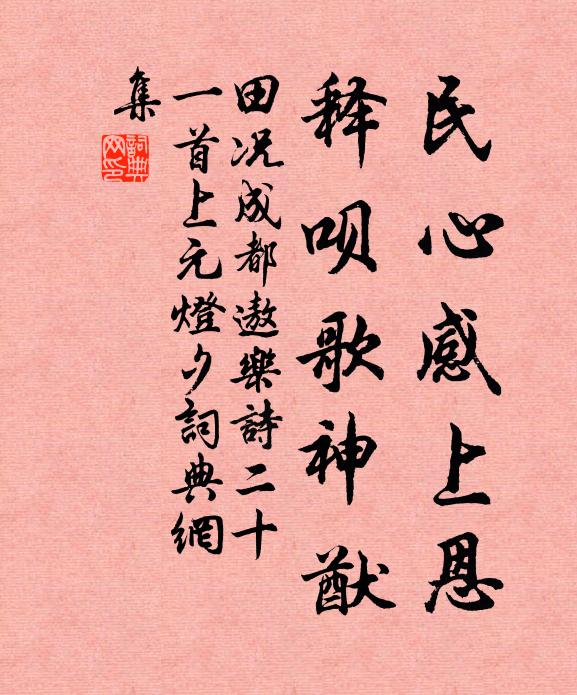 民心感上恩
释呗歌神猷
田况成都遨樂詩二十
一首上元燈夕詞典網
集
詞典網印